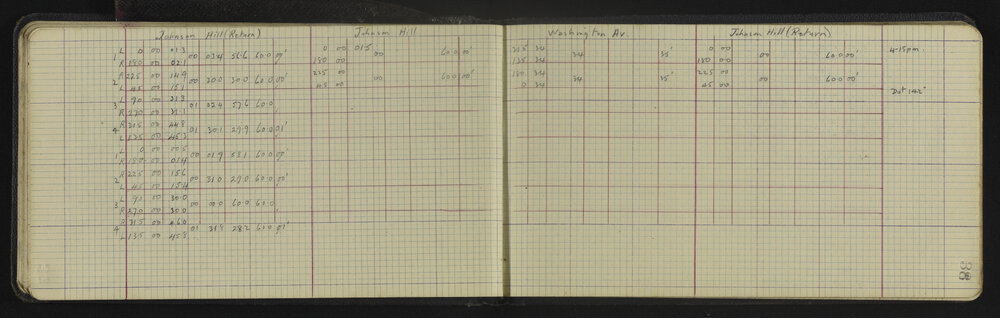 Johnson Hill (Return) Johnson Hill Washington Av. Johnson Hill (Return)
L 0 00 01.3 0 00 01.5 215 34 0 00 4-15pm
1 00 03.4 56.6 60.0 00' 00 60.0 00' 34 35' 00 60.0 00'
R 180 00 02.1 180 00 135 34 180 00
R 225 00 14.9 225 00 180 34 225 00
2 00 30.0 30.0 60.0 00' 00 60.0 00' 34 35' 00 60.0 00'
L 45 00 15.1 45 00 0 34 45 00
L 90 00
3 01 02.4 57.6 60.0
R 270 00 31.1
R 315 00 44.8
4 01 30.1 29.9 60.0 01'
L 135 00 45.3
L 0 00 00.5
1 00 01.9 58.1 60.0 00'
R 180 00 01.4
R 225 00 15.6
2 00 31.0 29.0 60.0 00'
L 45 00 15.4
L 90 00 30.0
3 00 00.0 60.0 60.0
R 270 00 30.0
R 315 00 46.0
4 01 31.8 28.2 60.0 01'
L 135 00 45.8